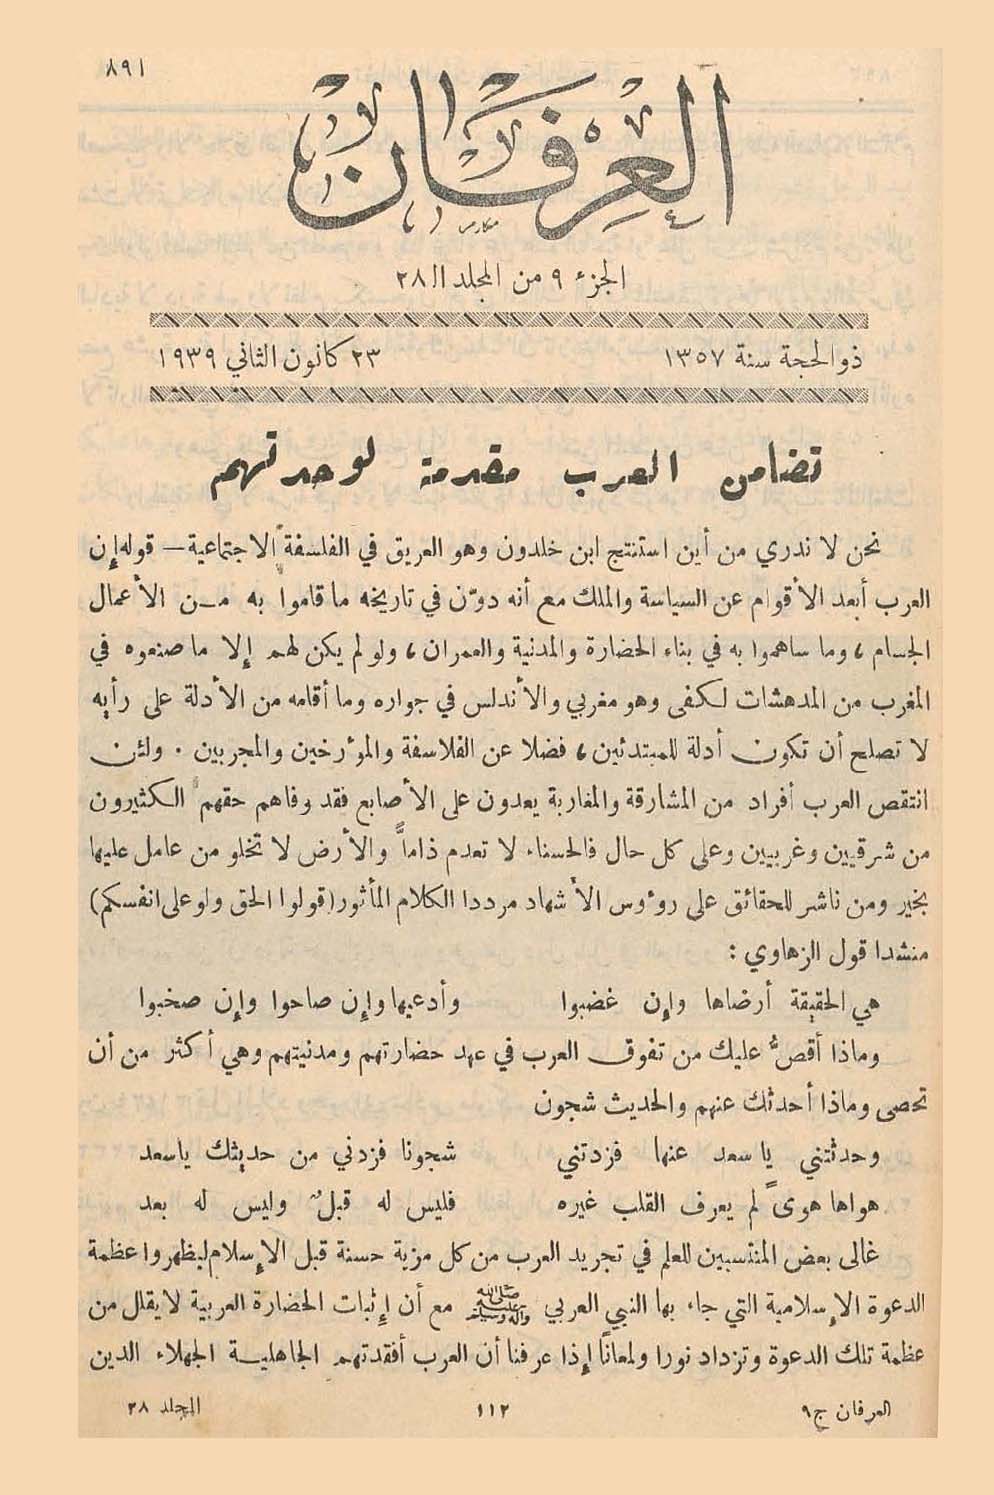 ٨٩١
العرفان
الجزء ٩ من المجلد الـ ٢٨
ذو الحجة سنة ١٣٥٧ ٢٣ كانون الثاني ١٩٣٩
تضامن العرب مقدمة لوحدتهم
نحن لا ندري من أين استنتج ابن خلدون وهو العريق في الفلسفة الاجتماعية — قوله إن
العرب أبعد الأقوام عن السياسة والملك مع أنه دوّن في تاريخه ما قاموا به من الأعمال
الجسام ، وما ساهموا به في بناء الحضارة والمدنية والعمران ، ولو لم يكن لهم إلا ما صنعوه في
المغرب من المدهشات لكفى وهو مغربي والأندلس في جواره وما أقامه من الأدلة على رأيه
لا تصلح أن تكون أدلة للمبتدئين ، فضلا عن الفلاسفة والمؤرخين والمجربين . ولئن
انتقص العرب أفراد من المشارقة والمغاربة يعدون على الأصابع فقد وفاهم حقهم الكثيرون
من شرقيين وغربيين وعلى كل حال فالحسناء لا تعدم ذاماً والأرض لا تخلو من عامل عليها
بخير ومن ناشر للحقائق على رؤوس الأشهاد مرددا الكلام المأثور (قولوا الحق ولو على انفسكم)
منشدا قول الزهاوي :
هي الحقيقة أرضاها وإن غضبوا وأدعيها وإن صاحوا وإن صخبوا
وماذا أقصُّ عليك من تفوق العرب في عهد حضارتهم ومدنيتهم وهي أكثر من أن
تحصى وماذا أحدثك عنهم والحديث شجون
وحدثتني يا سعد عنها فزدتني شجونا فزدني من حديثك ياسعد
هواها هوىً لم يعرف القلب غيره فليس له قبلٌ وليس له بعد
غالى بعض المنتسبين للعلم في تجريد العرب من كل مزية حسنة قبل الإسلام ليظهروا عظمة
الدعوة الإسلامية التي جاء بها النبي العربي صلى الله عليه وآله وسلم مع أن إثبات الحضارة العربية لا يقال من
عظمة تلك الدعوة وتزداد نورا ولمعاناً إذا عرفنا أن العرب أفقدتهم الجاهلية الجهلاء الدين
العرفان ج٩ ١١٢ المجلد ٢٨